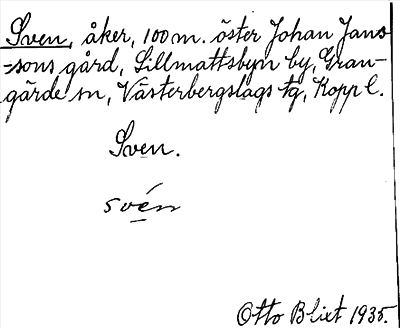 Sven, åker, 100 m. öster Johan Jans
-sons gård, Sillmattsbyn by, Gran-
gärde sn, Västerbergslags tg, Kopp l.
Sven.
svén
Otto Blixt 1935.